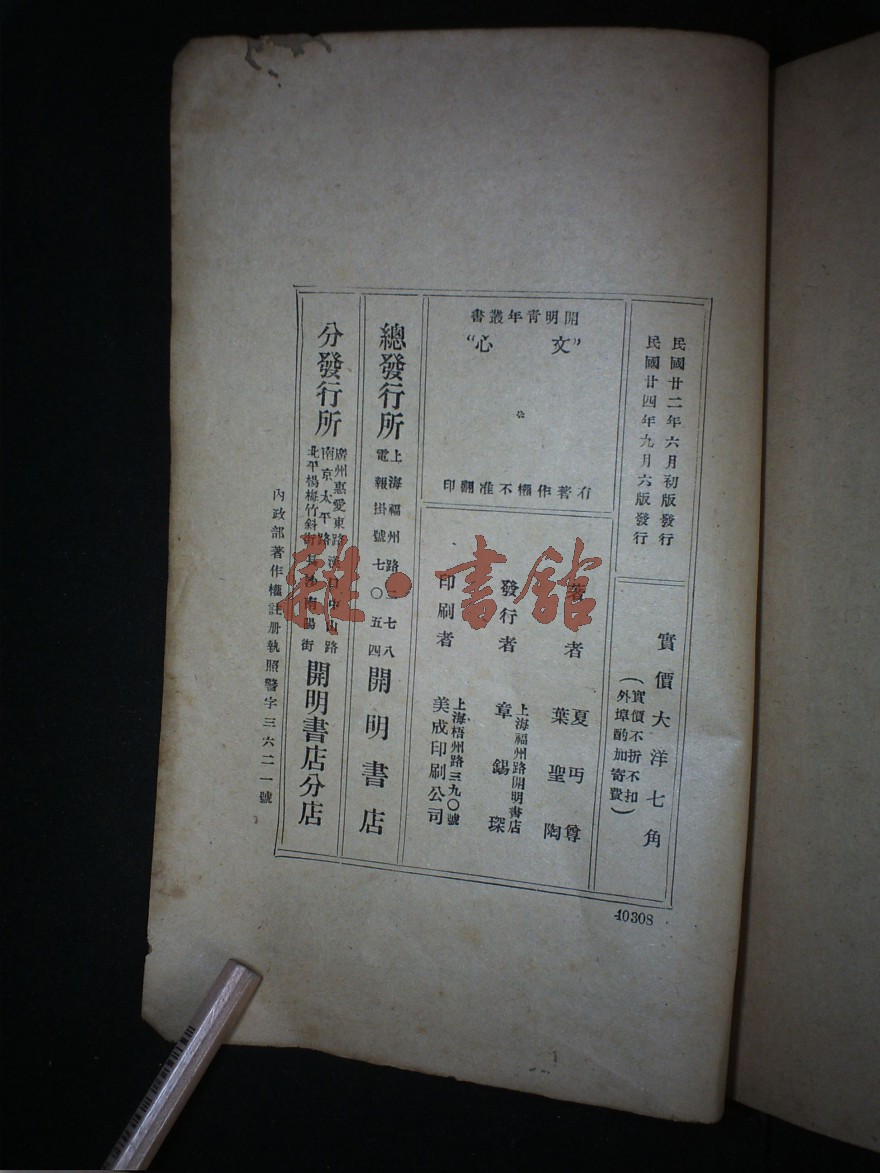 民國廿二年六月初版發行
民國廿四年九月六版發行
實價大洋七角
（實價不折不扣
外埠酌加寄費）
開明青年叢書
“文心”
有著作權不准翻印
著者
夏丏尊
葉聖陶
發行者
上海福州路開明書店
章錫琛
印刷者
上海梧州路三九〇號
美成印刷公司
總發行所
上海福州路二七八
電報掛號七〇五四
開明書店
分發行所
廣州惠愛東路
漢口中山路
南京太平路
長沙南陽街
北平楊梅竹斜街
開明書店分店
內政部著作權註册執照警字三六二一號
40308
雜·書館